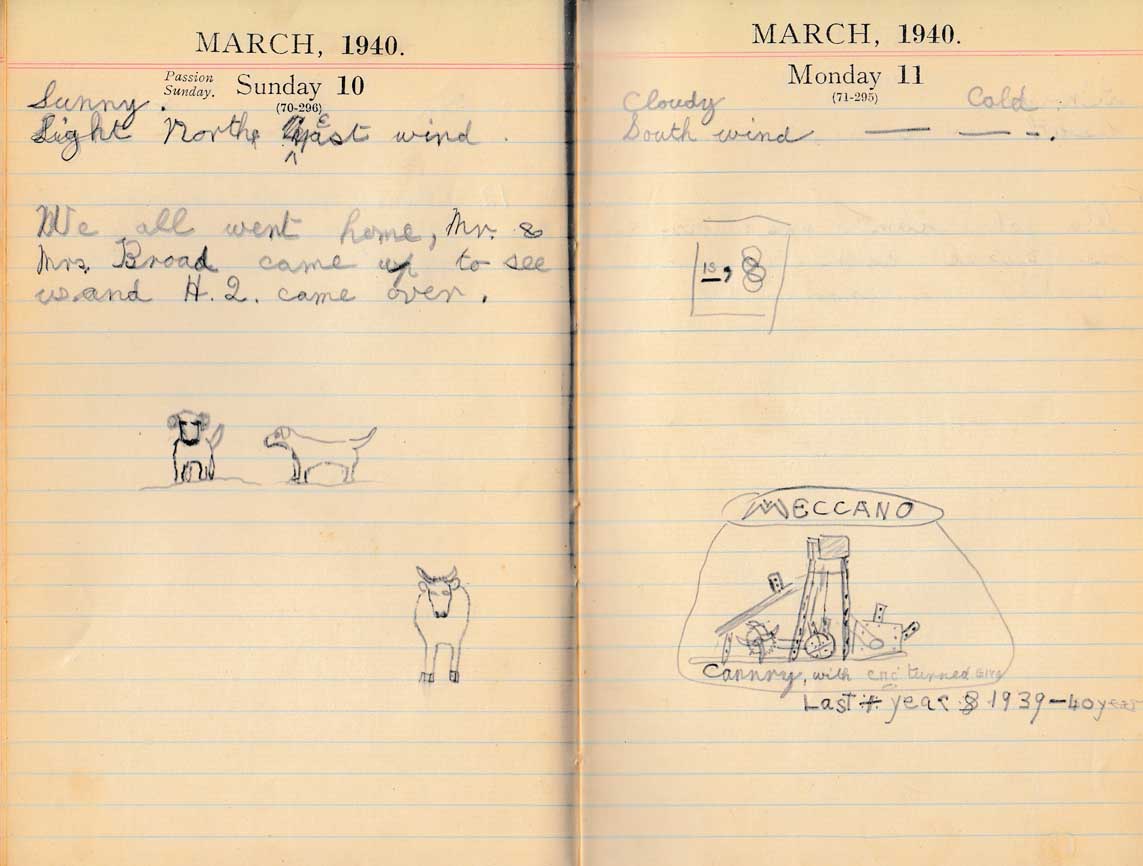 MARCH, 1940.
Passion
Sunday.
Sunday 10
(70-296)
Sunny.
Light North East wind.
We all went home, Mr. &
Mrs. Broad came up to see
us and H.Q. came over.
MARCH, 1940.
Monday 11
(71-295)
Cloudy Cold
South wind
MECCANO
with turned
Last year 1939-40 year